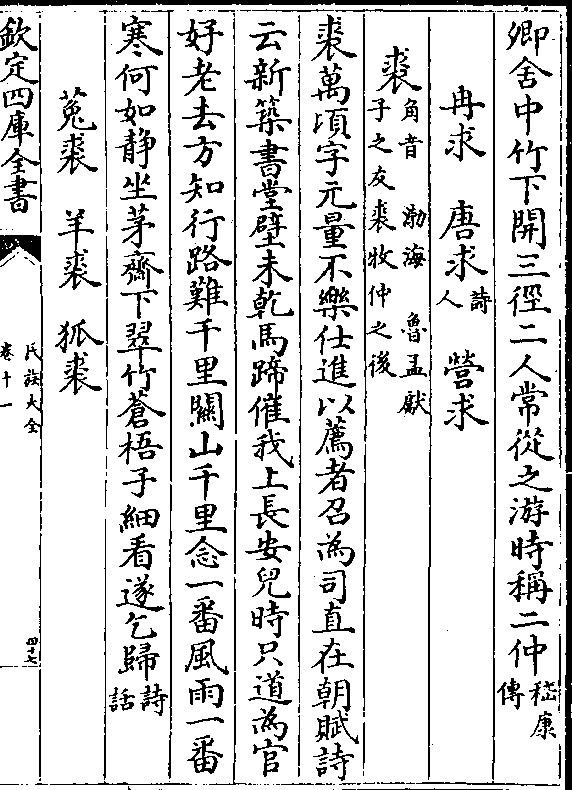 卿舍中竹下開三徑二人常從之游時稱二仲嵇康傳
冉求　唐求詩人　營求
裘角音　渤海　魯孟獻子之友裘牧仲之後
裘萬頃字元量不樂仕進以薦者召為司直在朝賦詩
云新築書堂壁未乾馬蹄催我上長安兒時只道為官
好老去方知行路難千里關山千里念一番風雨一番
寒何如靜坐茅齋下翠竹蒼梧子細看遂乞歸詩話
菟裘　羊裘　狐裘
欽定四庫全書
氏族大全
卷十一
四十七